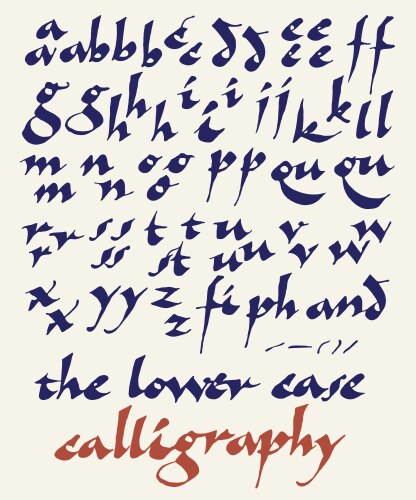 a a a b b b c c d d e e e e f f
g g h h h i i i j j k k l l
m m n n o o o p p qu qu
r r r s s s s t t st u u u v v w w
x x y y z z fi ph and
the lower case
calligraphy